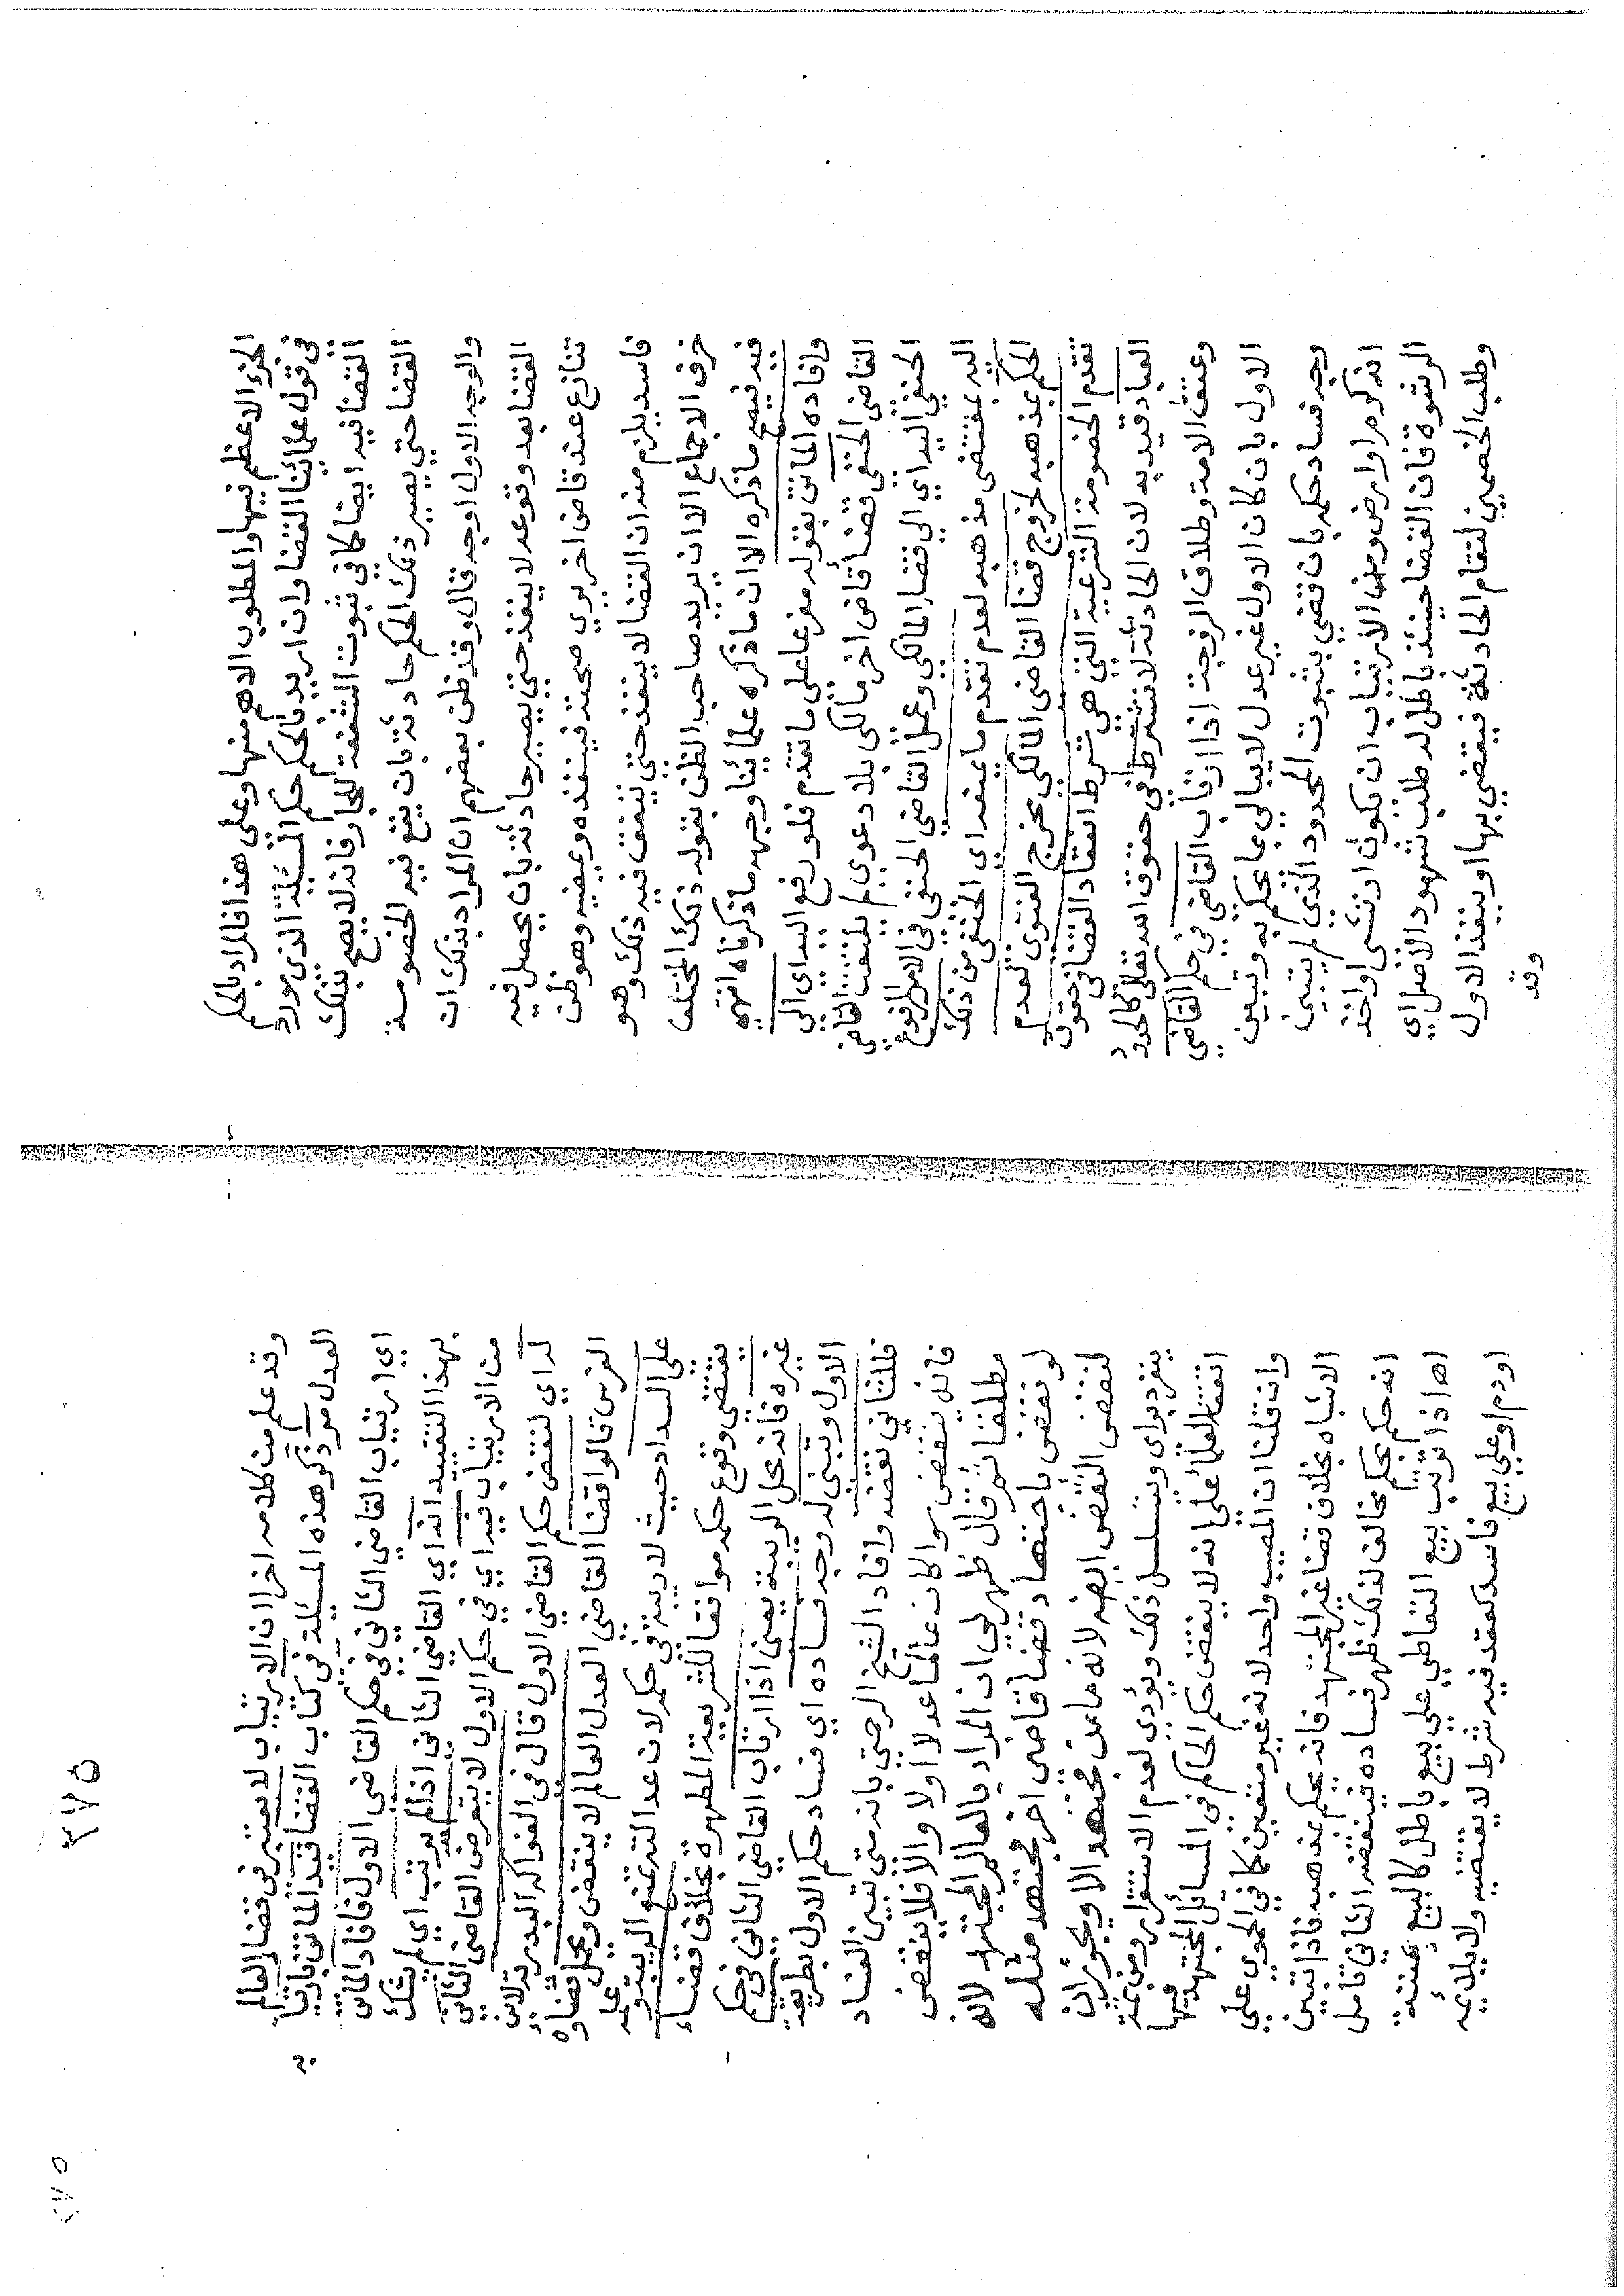 الجزء الاعظم فيها والمطلوب الاهم منها وعلى هذا فالمراد بالحكم
في قول علمائنا القضا وان اريد بالحكم حكم المسئلة الذي مورد
القضا فيه ايضا كما في ثبوت الشفعة للجار فانه لا يصح تلك
القضا حتي يصير ذلك الحكم حادثة بان يقع فيه الخصومة
والوجه الاول اوجه قال وقد ظن بعضهم ان المراد بذلك ان
القضا بعد وقوعه لا ينفذ حتي يصير حادثة بان يحصل فيه
تنازع عند قاض اخر يري صحته فينفذه ويمضيه وهو ظن
فاسد يلزم منه ان القضا لا ينفذ حتي يتفق فيه ذلك وهو
خرق الاجماع الا ان يريد صاحب الظن بقوله ذلك المختلف
فيه فيصح ما ذكره الا ان ما ذكره علمائنا وجهه ما ذكرناه انتهي
وافاده الماتن بقوله مفرعا على ما تقدم فلو رفع اليه اي الي
القاضي الحنفي قضا قاض اخر مالكي بلا دعوي لم يلتفت القاضي
الحنفي اليه اي الي قضا المالكي وعمل القاضي الحنفي في الامر المرفوع
اليه بمقتضى مذهبه لعدم تقدم ما يمنعه اي الحنفي من ذلك
الحكم بمذهبه لخروج قضا القاضي المالكي مخرج الفتوي لعدم
تقدم الخصومة الشرعية التي هي شرط انعقاد القضا في حقوق
العباد قيد به لان الحادثة لا تشترط في حقوق الله تعالى كالحدود
وعتق الامة وطلاق الزوجة اذا ارتاب القاضي في حكم القاضي
الاول بان كان الاول غير عدل لا يبالي بما يحكم به وتبين
وجه فساد حكمه بان قضي بثبوت المحدود الذي لم يتبين
انه كرم او ارض ومنها الارتياب ان تكون ارتشى او اخذ
الرشوة فان القضا حينئذ باطل له طلب شهود الاصل اي
وطلب الخصمين لتقام الحادثة فيقضي بها او ينفذ الاول
وقد
٢٧٥
وقد علم من كلامه اخرا ان الارتياب لا يعتبر في قضا العالم
العدل مو ذكر هذه المسئلة في كتاب القضا فقد الماتن بارتيا
اي ارتياب القاضي الثاني في حكم القاضي الاول فافاد الماتن
بهذا التقييد انه اي القاضي الثاني اذا لم يرتب اي لم يشك
من الارتياب فيه اي في حكم الاول لا يتعرض القاضي الثاني
له اي لنقض حكم القاضي الاول قال في الفواكه البدرية لابن
الغرس قالوا قضا القاضي العدل العالم لا ينقض ويحمل قضاؤه
على السداد حيث لا ريبة في حكمه لان عدالته تمنع الريبة عنه
تقتضي وقوع حكمه موافقا للشريعة المطهرة بخلاف قضاء
غيره فانه محل الريبة يعني اذا ارتاب القاضي الثاني في حكم
الاول وتبين له وجه فساده اي فساد حكم الاول بطريقه
فللثاني نقضه وافاد الشيخ الرحمتي بانه متي تبين الفساد
فانه ينقض سوا كان عالما عدلا اولا والا فلا ينقض
مطلقا ثم قال ظهر لي ان المراد بالعالم المجتهد لانه
لو نقض باجتهاد قضا قاضي اخر مجتهد مثله
لنقض النقض ايضا لانه ما من مجتهد الا ويجوز ان
ينفرد براي ويتسلسل ذلك ويؤدي لعدم الاستقرار ومن ثمة
اتفق العلما على انه لا ينقض حكم الحاكم في المسائل المجتهد فيها
وان قلنا ان المصيب واحد لانه غير متعين كما في الحموي علي
الاشباه بخلاف قضا غير المجتهد فانه يحكم بمذهبه فاذا تبين
انه حكم بحكم مخالف لذلك ظهر فساده فينقضه الثاني تامل
اه اذا ترتب بيع التعاطي علي بيع باطل كالبيع بميتة
او دم او علي بيع فاسد كعقد فيه شرط لا يقتضيه ولا يلائمه